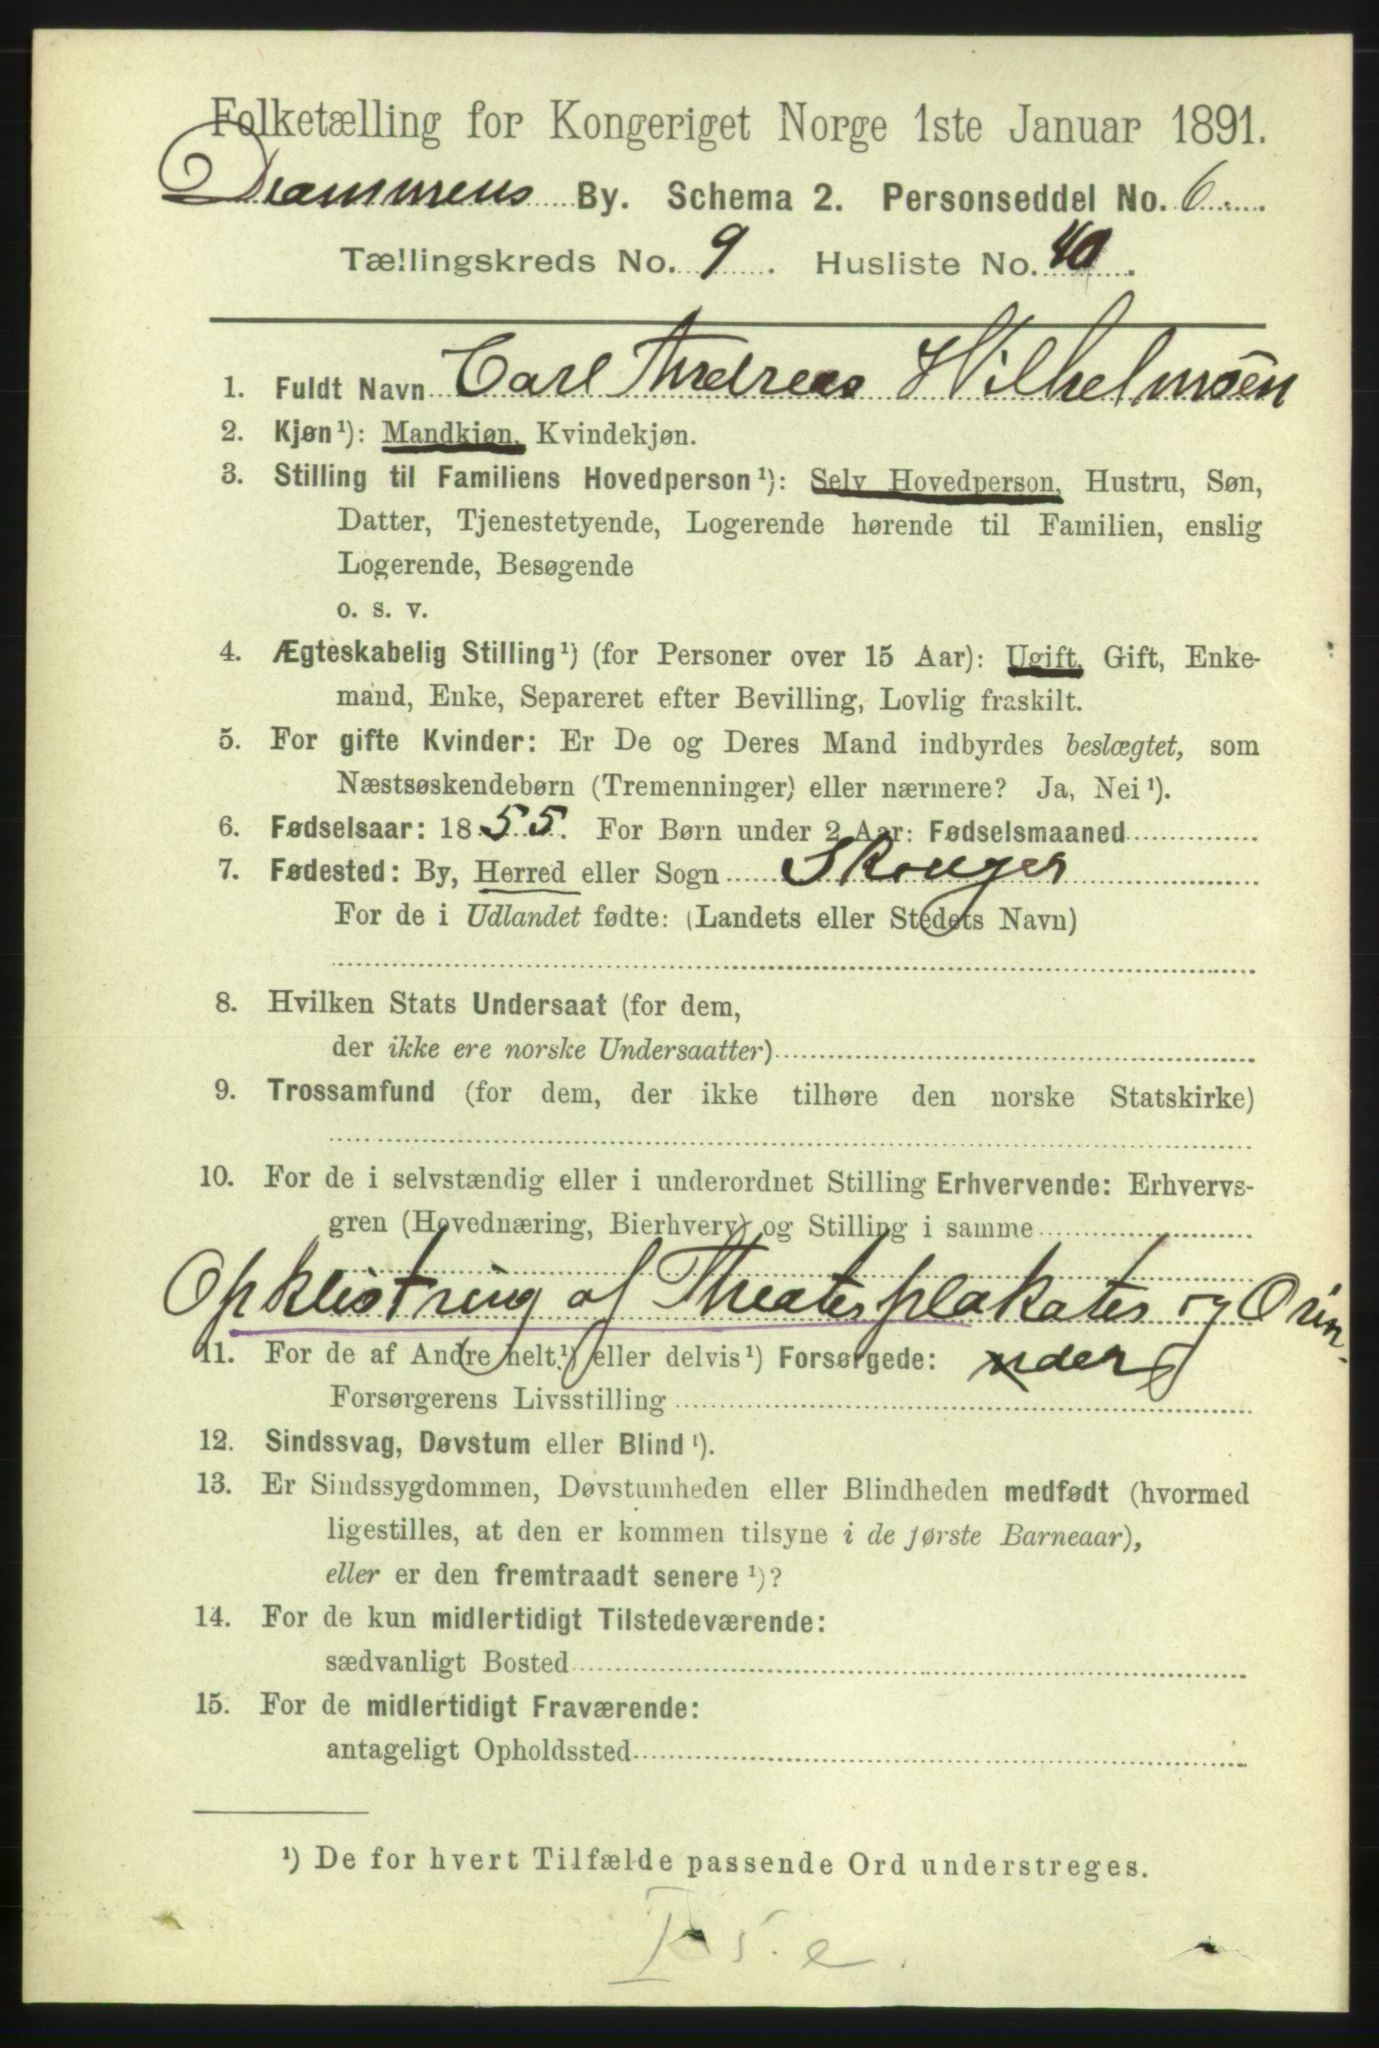 Folketælling for Kongeriget Norge 1ste Januar 1891.
Drammens By. Schema 2. Personseddel No. 6
Tællingskreds No. 9. Husliste No. 40.
1. Fuldt Navn Carl Andreas Wilhelmsen
2. Kjøn¹): Mandkjøn, Kvindekjøn.
3. Stilling til Familiens Hovedperson¹): Selv Hovedperson, Hustru, Søn,
Datter, Tjenestetyende, Logerende hørende til Familien, enslig
Logerende, Besøgende
o. s. v.
4. Ægteskabelig Stilling¹) (for Personer over 15 Aar): Ugift, Gift, Enke-
mand, Enke, Separeret efter Bevilling, Lovlig fraskilt.
5. For gifte Kvinder: Er De og Deres Mand indbyrdes beslægtet, som
Næstsøskendebørn (Tremenninger) eller nærmere? Ja, Nei¹).
6. Fødselsaar: 1855. For Børn under 2 Aar: Fødselsmaaned
7. Fødested: By, Herred eller Sogn Skouger
For de i Udlandet fødte: (Landets eller Stedets Navn)
8. Hvilken Stats Undersaat (for dem,
der ikke ere norske Undersaatter)
9. Trossamfund (for dem, der ikke tilhøre den norske Statskirke)
10. For de i selvstændig eller i underordnet Stilling Erhvervende: Erhvervs-
gren (Hovednæring, Bierhverv) og Stilling i samme
Opklistring af Theaterplakater og
11. For de af Andre helt¹) eller delvis¹) Forsørgede:
Forsørgerens Livsstilling
12. Sindssvag, Døvstum eller Blind¹).
13. Er Sindssygdommen, Døvstumheden eller Blindheden medfødt (hvormed
ligestilles, at den er kommen tilsyne i de første Barneaar),
eller er den fremtraadt senere¹)?
14. For de kun midlertidigt Tilstedeværende:
sædvanligt Bosted
15. For de midlertidigt Fraværende:
antageligt Opholdssted
¹) De for hvert Tilfælde passende Ord understreges.